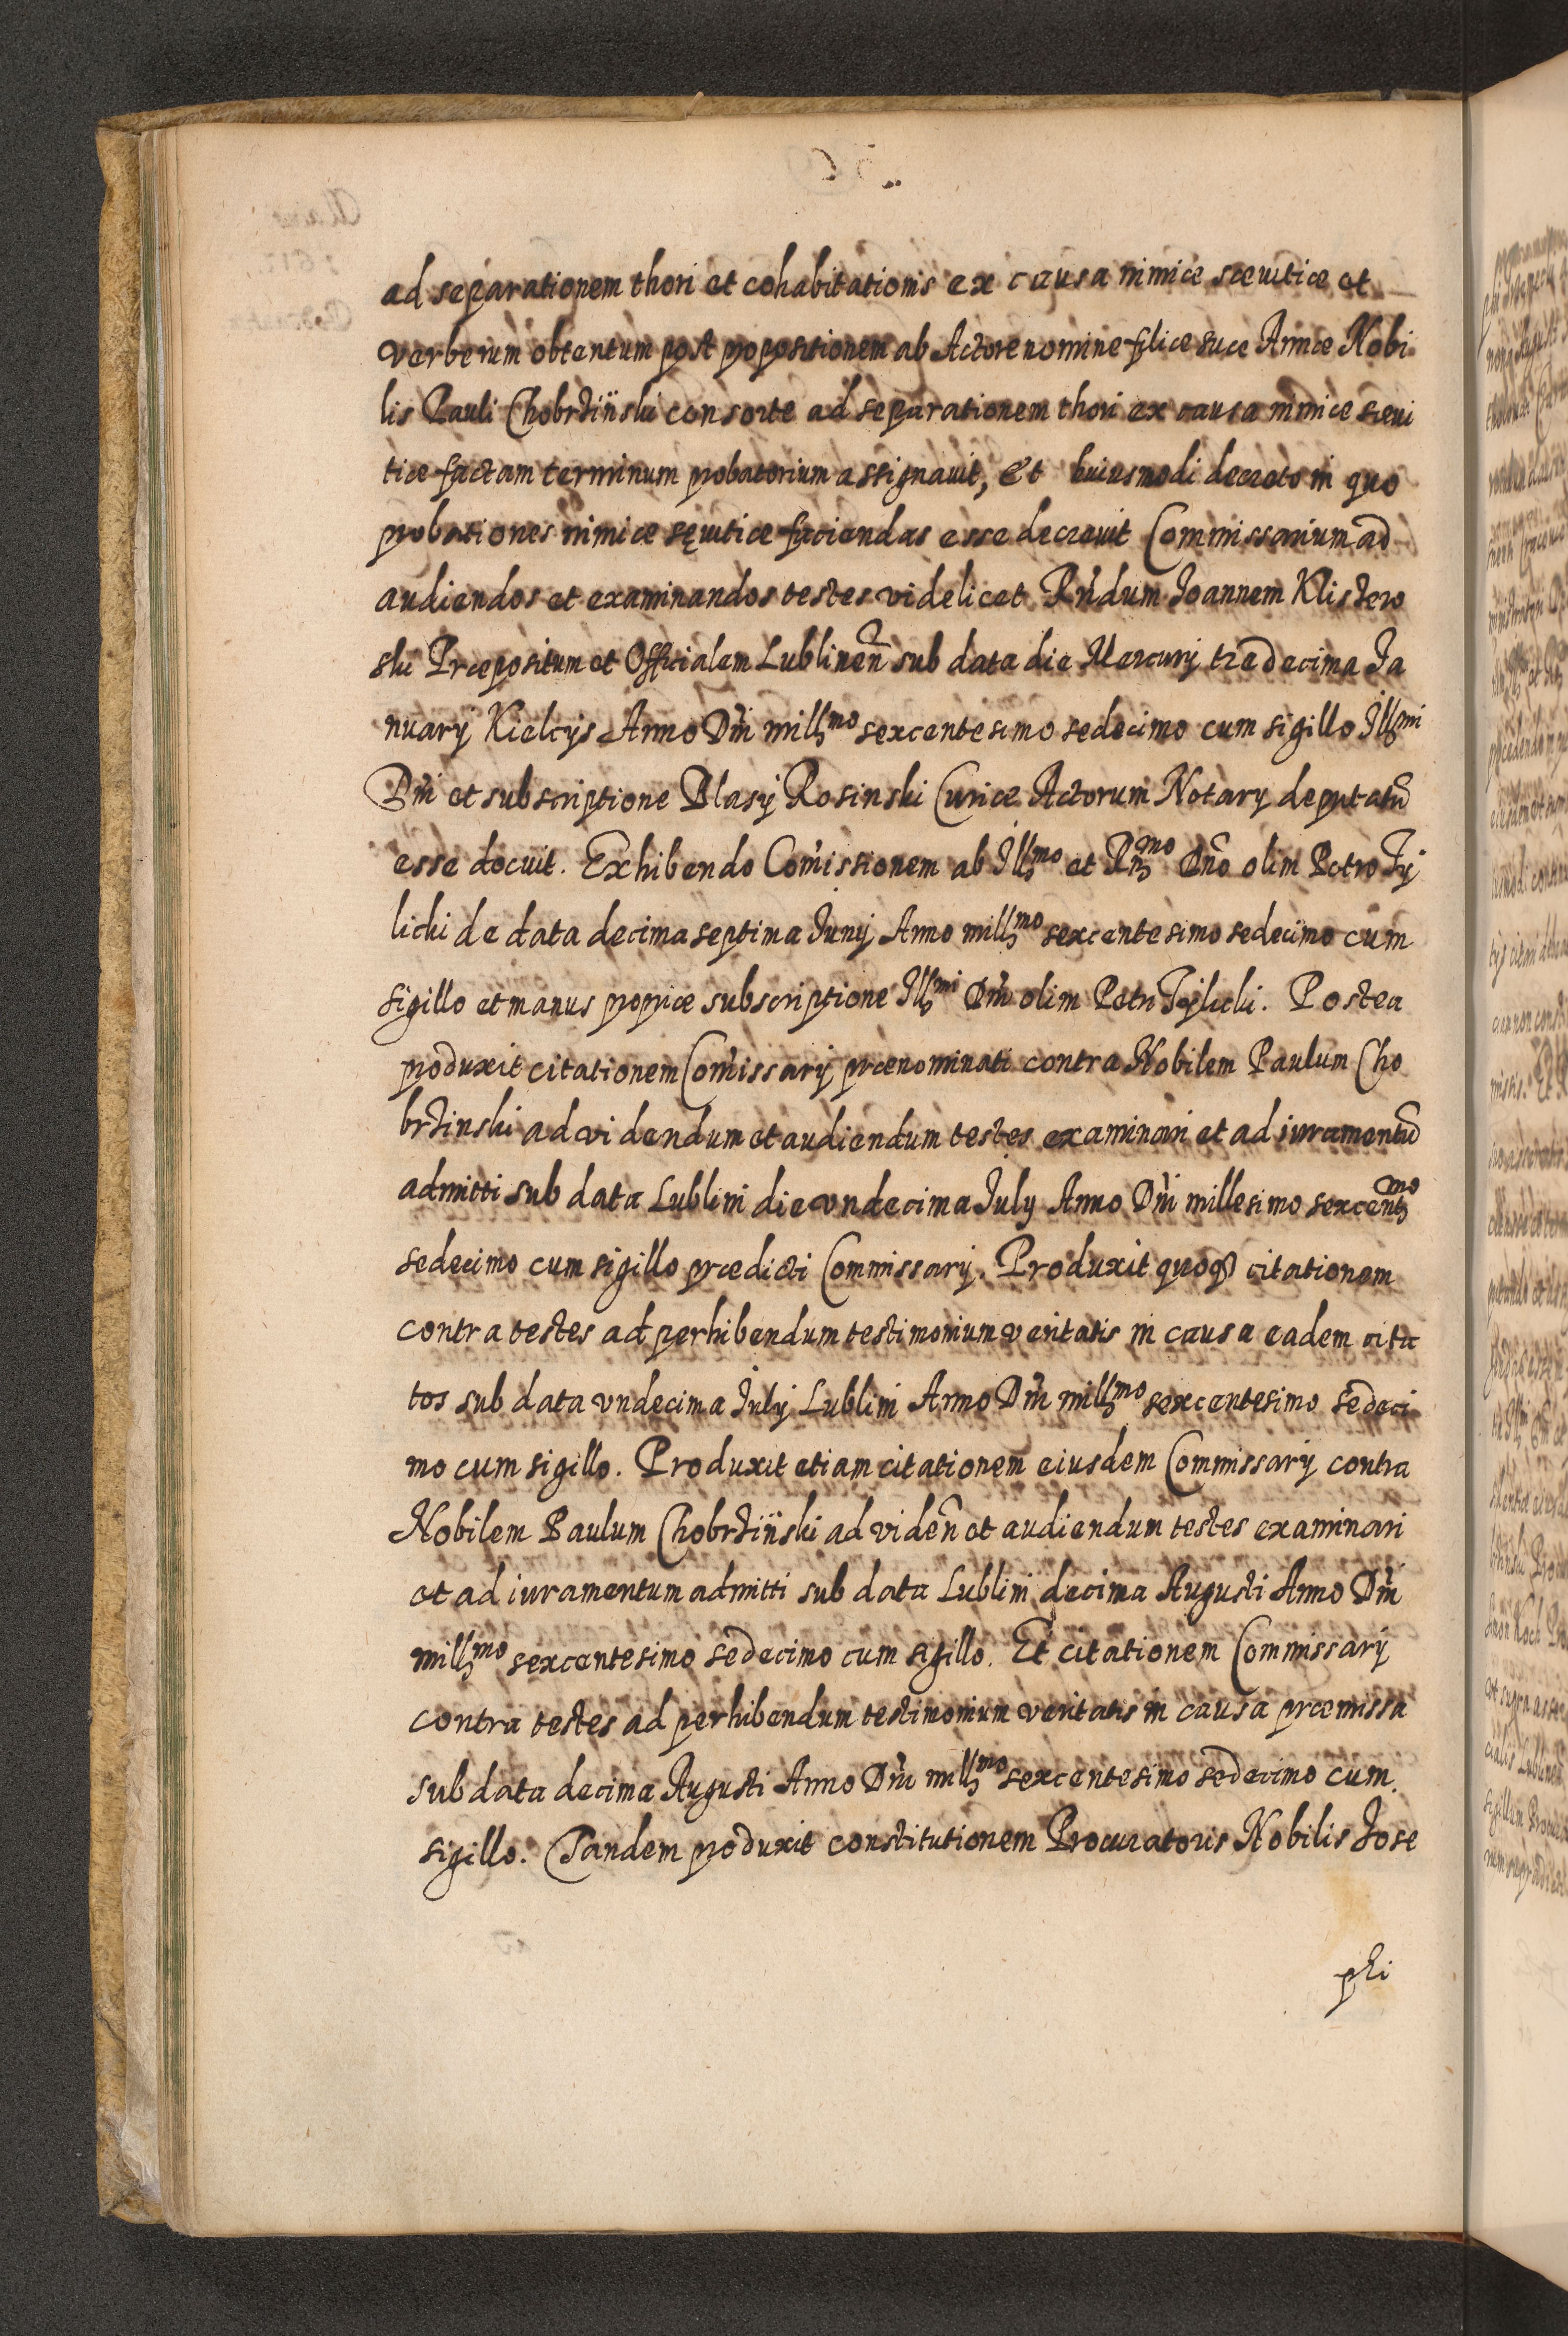 ad separationem thori et cohabitationis ex causa nimiæ sæuitiæ et
verberum obtentum post propositionem ab Actore nomine filiæ suæ Annæ Nobi
lis Pauli Chobrziński consorte ad separationem thori ex causa nimiæ sæui
tiæ factam terminum probatorium assignauit, Et huiusmodi decreto in quo
probationes nimiæ sęuitiæ faciendas esse decreuit Commissarium ad
audiendos et examinandos testes videlicet Rńdum Joannem Klistew
ski Præpositum et Officialem Lublineñ sub data die Mercurij tredecima Ja
nuarij Kielcijs Anno Dńi mill͂mo sexcentesimo sedecimo cum sigillo Ill͂mi
Dńi et subscriptione Blasij Rosinski Curiæ Actorum Notarij deputatū
esse docuit. Exhibendo Com̃issionem ab Ill͂mo et Rm̃mo Dño olim Petro Ty
licki de data decima septima Junij Anno mill͂mo sexcentesimo sedecimo cum
sigillo et manus propriæ subscriptione Ill͂mi Dńi olim Petri Tylicki. Postea
produxit citationem Com̃issarij prænominati contra Nobilem Paulum Cho
brzinski ad videndum et audiendum testes examinari et ad iuramentū
admitti sub data Lublini die vndecima July Anno Dńi millesimo sexcentmo
sedecimo cum sigillo prædicti Commissarij. Produxit quoqз citationem
contra testes ad perhibendum testimonium veritatis in causa eadem cita
tos sub data vndecima July Lublini Anno Dńi mill͂mo sexcentesimo sedeci
mo cum sigillo. Produxit etiam citationem eiusdem Commissarij contra
Nobilem Paulum Chobrziński ad videñ et audiendum testes examinari
et ad iuramentum admitti sub data Lublini decima Augusti Anno Dńi
mill͂mo sexcentesimo sedecimo cum sigillo. Et citationem Commissarij
contra testes ad perhibendum testimonium veritatis in causa præmissa
sub data decima Augusti Anno Dńi mill͂mo sexcentesimo sedecimo cum
sigillo. Tandem produxit constitutionem Procuratoris Nobilis Jose
phi